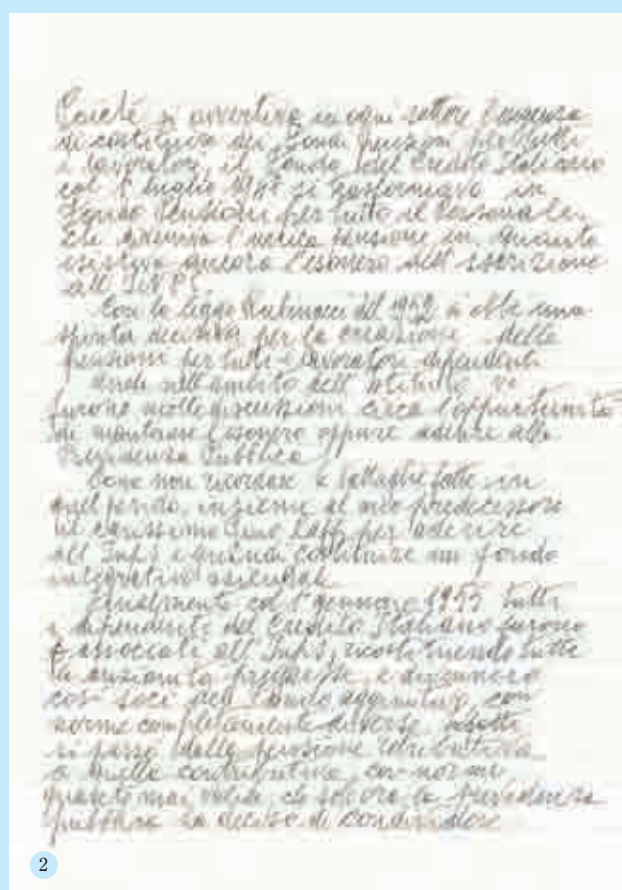 si avvertiva in ogni settore l'esigenza
di costituire dei Fondi pensioni per tutti
i lavoratori il Fondo del Credito Italiano
col 1° luglio si trasformava in
Fondo Pensioni per tutto il Personale.
che l'unica pensione in quanto
esisteva ancora l'esonero dall'iscrizione
all'INPS.
Con la legge Rubinacci del 1952 si ebbe una
spinta decisiva per la creazione delle
pensioni per tutti i lavoratori dipendenti
nell'ambito dell'Istituto vi
furono molte discussioni circa l'opportunità
di mantenere l'esonero oppure aderire alla
Previdenza Pubblica.
Come non ricordare le battaglie fatte in
quel periodo, insieme al mio predecessore
il carissimo per aderire
all'Inps e quindi costituire un fondo
integrativo aziendale
Finalmente col 1° gennaio tutti
i dipendenti del Credito Italiano furono
associati all'Inps, ricostituendo tutte
le anzianità pregresse, e divennero
così soci del Fondo aggiuntivo con
norme completamente diverse, infatti
si passò dalla pensione retributiva
a quella contributiva, con norme
quanto mai valide, che solo ora la previdenza
pubblica ha deciso di condividere